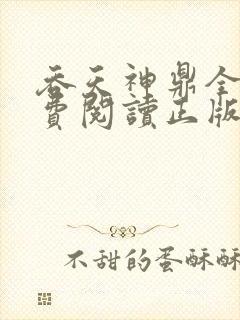 吞天神鼎全
費閱讀正版
不甜的蛋酥酥